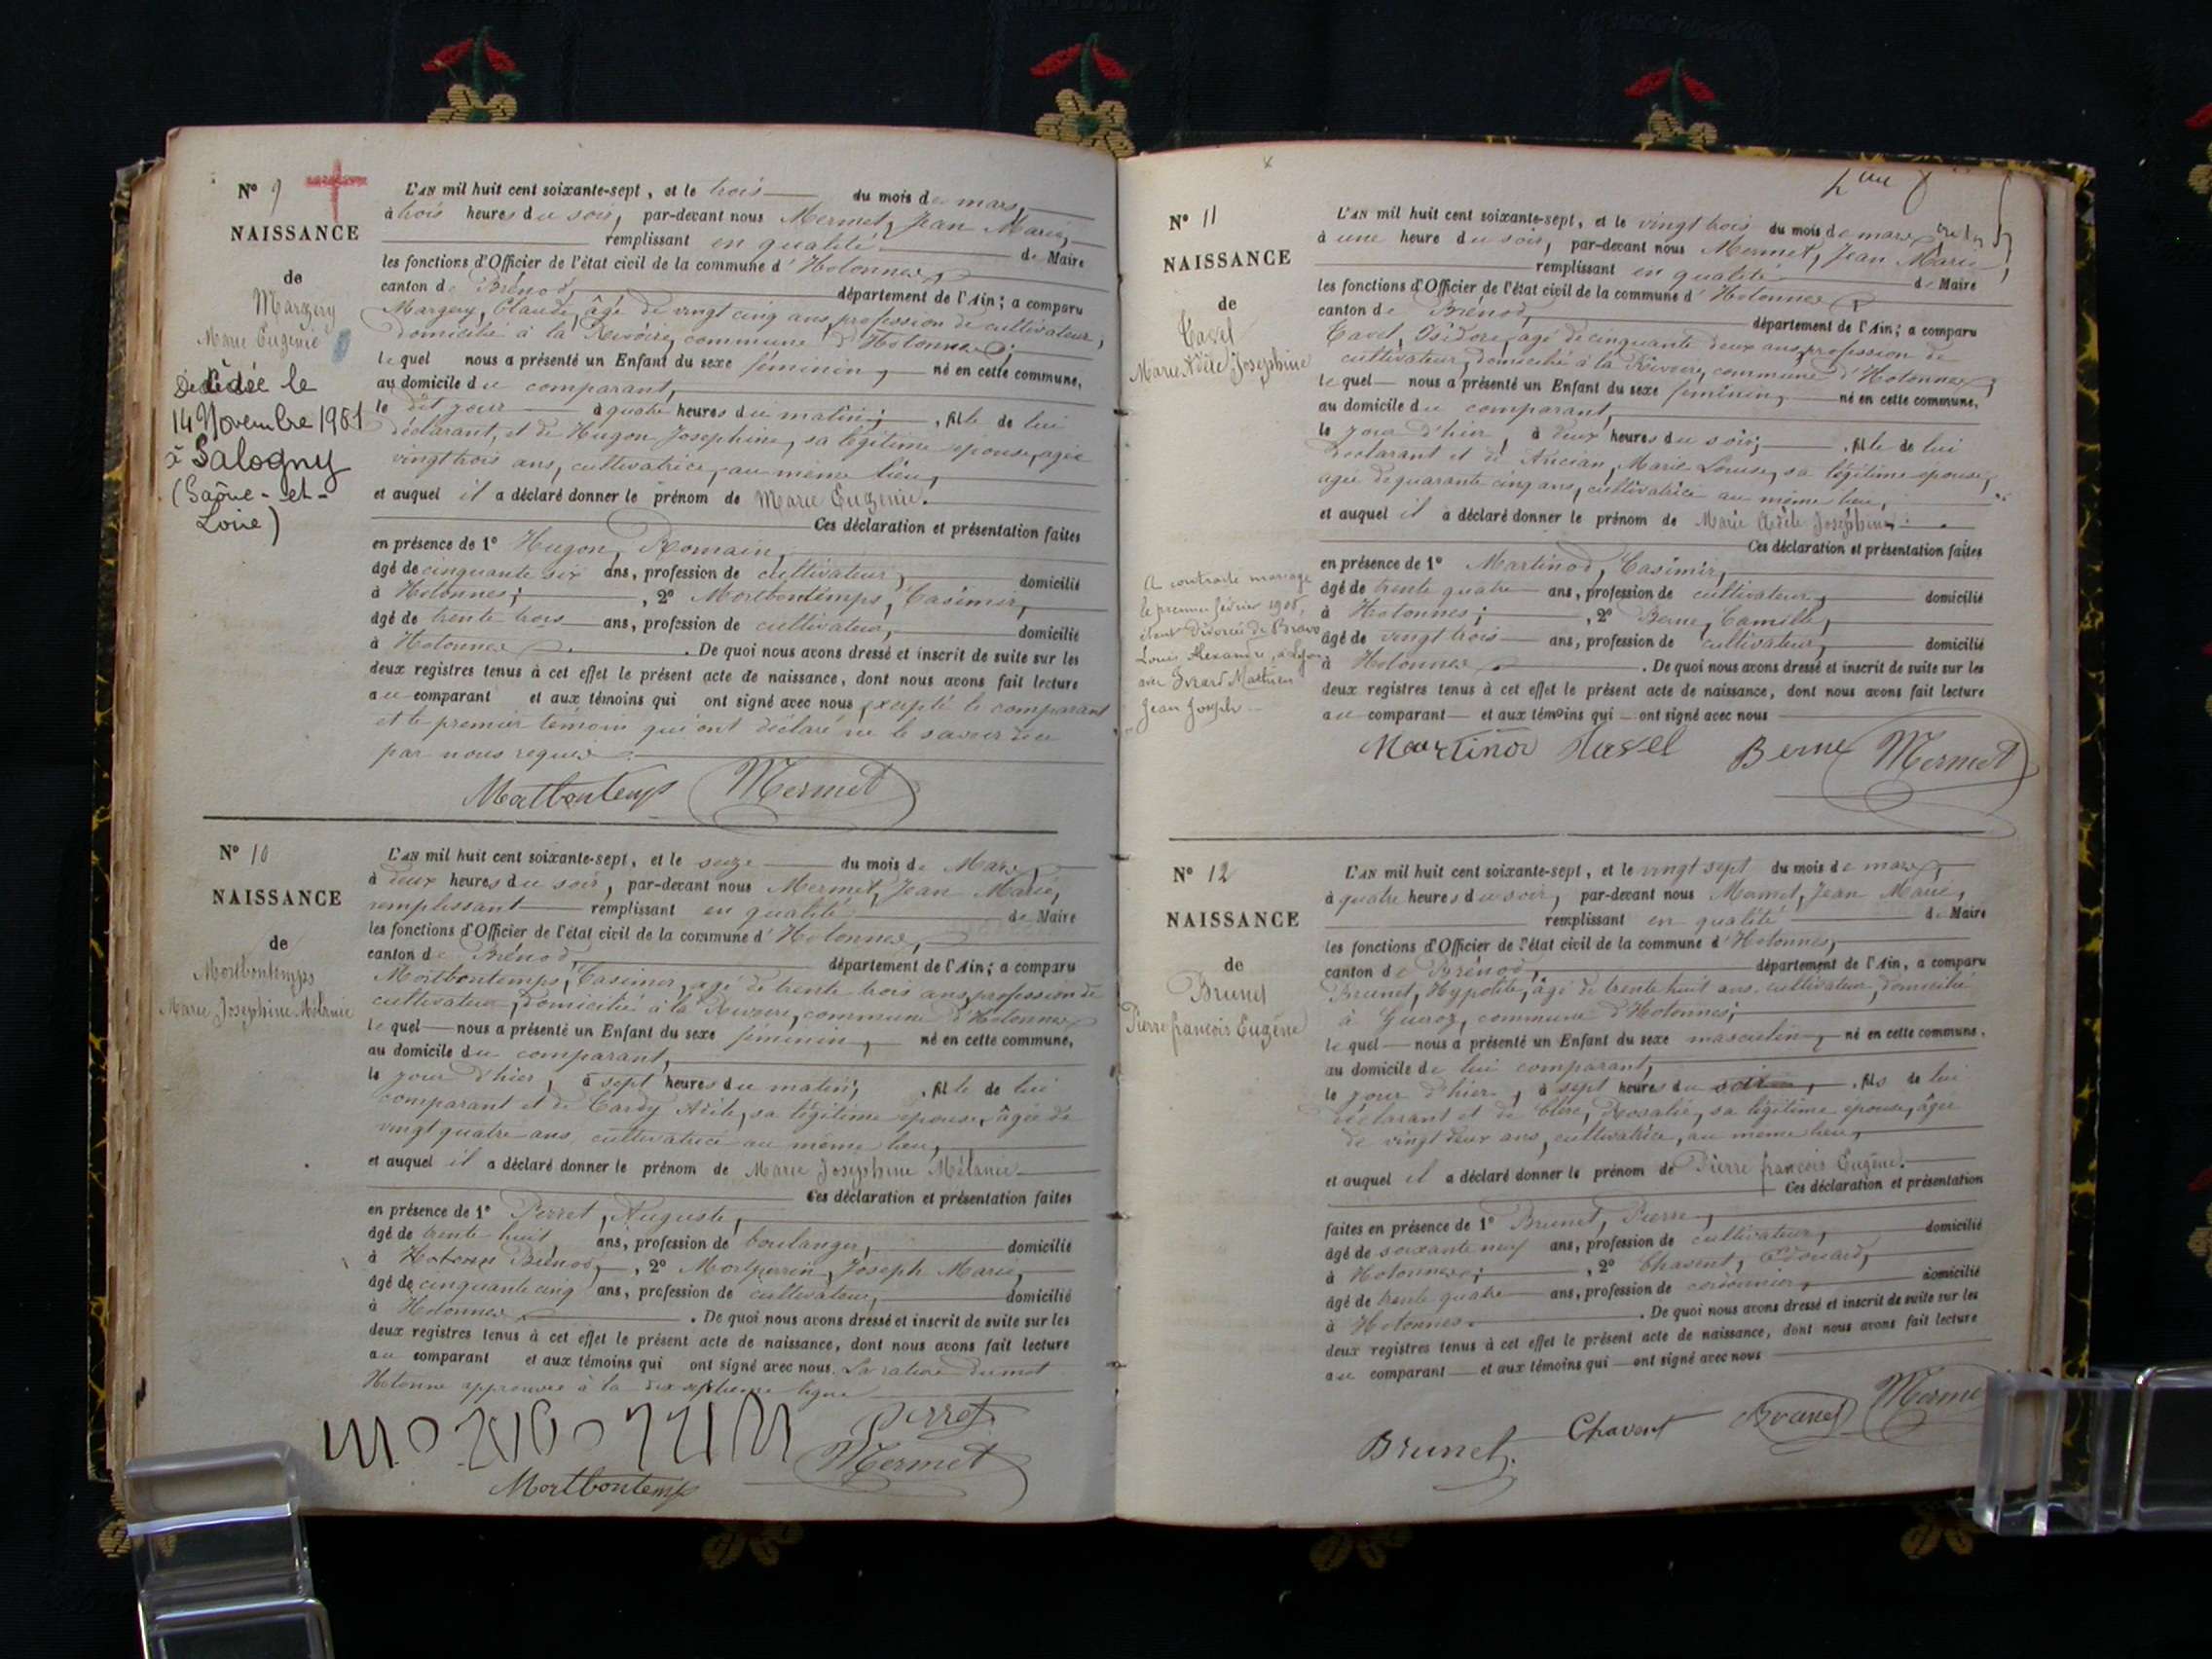 N° 9
NAISSANCE
de
Margery
Marie Eugénie
Décédée le
14 Novembre 1951
à Salogny
(Saône-et-
Loire)
L'AN mil huit cent soixante-sept, et le trois du mois de mars,
à trois heures du soir, par-devant nous Mermet, Jean Marie,
remplissant en qualité de Maire
les fonctions d'Officier de l'état civil de la commune d'Hotonnes,
canton de Brénod, département de l'Ain; a comparu
Margery, Claude, âgé de vingt cinq ans, profession de cultivateur,
domicilié à la Rivoire, commune d'Hotonnes;
lequel nous a présenté un Enfant du sexe féminin, né en cette commune,
au domicile du comparant,
le dit jour à quatre heures du matin; fille de lui
déclarant, et de Hugon Josephine, sa légitime épouse, agée
vingt trois ans, cultivatrice, au même lieu,
et auquel il a déclaré donner le prénom de Marie Eugénie.
Ces déclaration et présentation faites
en présence de 1° Hugon, Romain,
âgé de cinquante six ans, profession de cultivateur, domicilié
à Hotonnes; , 2° Mortbontemps, Casimir,
âgé de trente trois ans, profession de cultivateur, domicilié
à Hotonnes . De quoi nous avons dressé et inscrit de suite sur les
deux registres tenus à cet effet le présent acte de naissance, dont nous avons fait lecture
au comparant et aux témoins qui ont signé avec nous, excepté le comparant
et le premier témoin qui ont déclaré ne le savoir de ce
par nous requis.
Mortbontemps Mermet
N° 10
NAISSANCE
de
Mortbontemps
Marie Josephine Mélanie
L'AN mil huit cent soixante-sept, et le seize du mois de Mars,
à deux heures du soir, par-devant nous Mermet, Jean Marie,
remplissant remplissant en qualité de Maire
les fonctions d'Officier de l'état civil de la commune d'Hotonnes,
canton de Brénod, département de l'Ain; a comparu
Mortbontemps, Casimir, agé de trente trois ans, profession de
cultivateur, domicilié à la Rivoire, commune d'Hotonnes
lequel nous a présenté un Enfant du sexe féminin, né en cette commune,
au domicile du comparant,
le jour d'hier, à sept heures du matin; , fille de lui
comparant et de Cardy Adèle, sa légitime épouse, âgée de
vingt quatre ans, cultivatrice au même lieu,
et auquel il a déclaré donner le prénom de Marie Josephine Mélanie
Ces déclaration et présentation faites
en présence de 1° Perret, Auguste,
âgé de trente huit ans, profession de boulanger, domicilié
à Brénod, , 2° Mortperrin, Joseph Marie,
âgé de cinquante cinq ans, profession de cultivateur, domicilié
à Hotonnes . De quoi nous avons dressé et inscrit de suite sur les
deux registres tenus à cet effet le présent acte de naissance, dont nous avons fait lecture
au comparant et aux témoins qui ont signé avec nous. La rature du mot
Hotonne approuvée à la dix septième ligne
Perret
Mermet
Mortbontemps
N° 11
NAISSANCE
de
Tavel
Marie Adèle Josephine
A contracté mariage
le premier février 1908,
étant divorcée de Bravo
Louis Alexandre, à Lyon
avec Girard Mathieu
Jean Joseph
L'AN mil huit cent soixante-sept, et le vingt trois du mois de mars,
à une heure du soir, par-devant nous Mermet, Jean Marie,
remplissant en qualité de Maire
les fonctions d'Officier de l'état civil de la commune d'Hotonnes
canton de Brénod, département de l'Ain; a comparu
Tavel, Isidore, agé de cinquante deux ans, profession de
cultivateur, domicilié à la Rivoire, commune d'Hotonnes,
lequel nous a présenté un Enfant du sexe féminin, né en cette commune,
au domicile du comparant,
le jour d'hier, à deux heures du soir; , fille de lui
Déclarant et de Ancian, Marie Louise, sa légitime épouse,
agée de quarante cinq ans, cultivatrice au même lieu,
et auquel il a déclaré donner le prénom de Marie Adèle Joséphine.
Ces déclaration et présentation faites
en présence de 1° Martinod, Casimir,
âgé de trente quatre ans, profession de cultivateur, domicilié
à Hotonnes; , 2° Berne, Camille,
âgé de vingt trois ans, profession de cultivateur, domicilié
à Hotonnes . De quoi nous avons dressé et inscrit de suite sur les
deux registres tenus à cet effet le présent acte de naissance, dont nous avons fait lecture
au comparant et aux témoins qui ont signé avec nous
Martinod Tavel Berne Mermet
N° 12
NAISSANCE
de
Brunet
Pierre françois Eugène
L'AN mil huit cent soixante-sept, et le vingt sept du mois de mars,
à quatre heures du soir, par-devant nous Mermet, Jean Marie,
remplissant en qualité de Maire
les fonctions d'Officier de l'état civil de la commune d'Hotonnes,
canton de Brénod, département de l'Ain, a comparu
Brunet, Hypolite, âgé de trente huit ans, cultivateur, domicilié
à Guroz, commune d'Hotonnes;
lequel nous a présenté un Enfant du sexe masculin, né en cette commune,
au domicile de lui comparant,
le jour d'hier, à sept heures du soir, , fils de lui
déclarant et de Clerc, Rosalie, sa légitime épouse, âgée
de vingt deux ans, cultivatrice, au même lieu,
et auquel il a déclaré donner le prénom de Pierre françois Eugène.
Ces déclaration et présentation
faites en présence de 1° Brunet, Pierre,
âgé de soixante neuf ans, profession de cultivateur, domicilié
à Hotonnes; , 2° Chavent, Edouard,
âgé de trente quatre ans, profession de cordonnier, domicilié
à Hotonnes. . De quoi nous avons dressé et inscrit de suite sur les
deux registres tenus à cet effet le présent acte de naissance, dont nous avons fait lecture
au comparant et aux témoins qui ont signé avec nous
Brunet Chavent Brunet Mermet